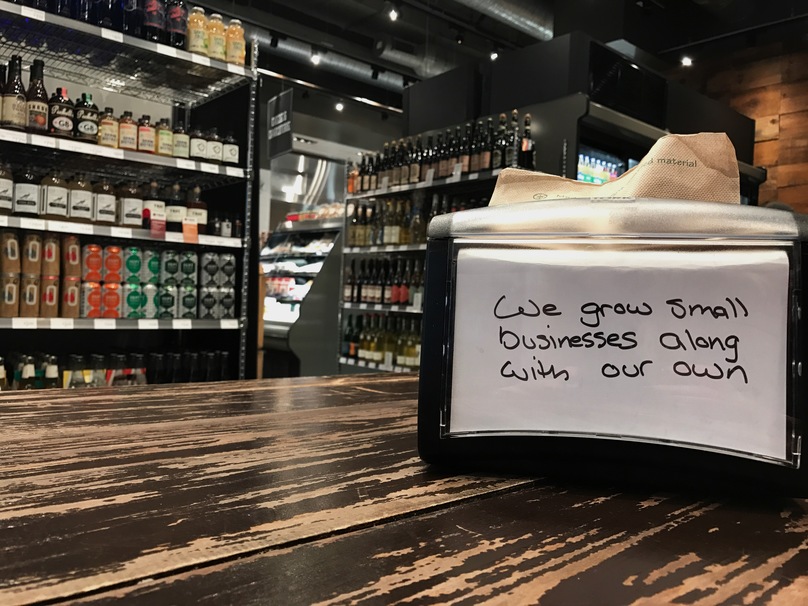 d material
We grow small
businesses along
with our own